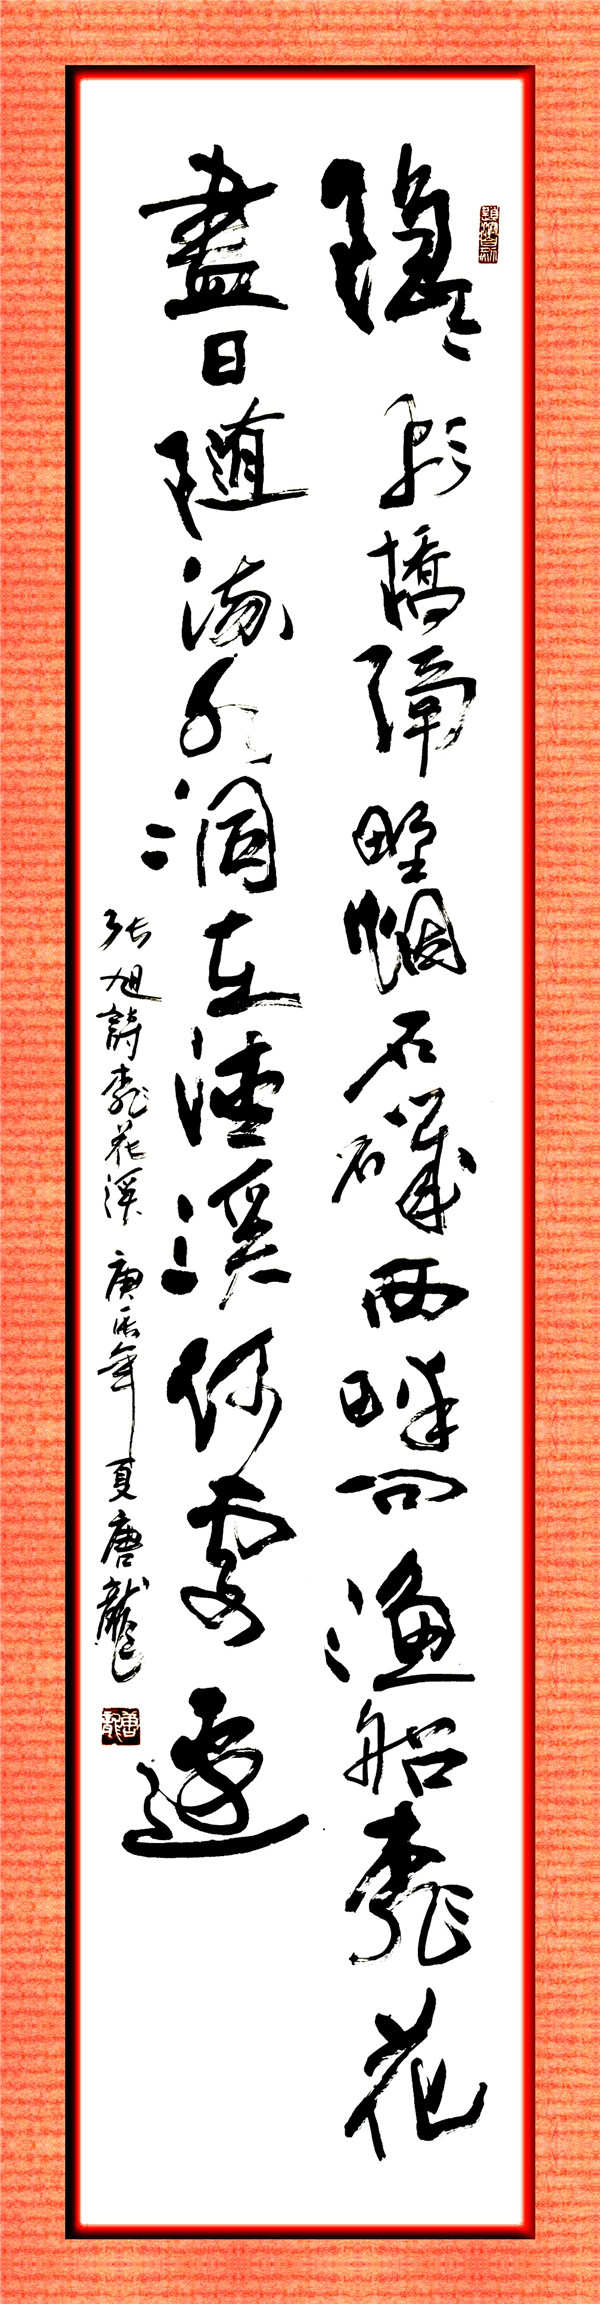 隱〻飛橋隔野烟石磯西畔问渔船桃花
盡日随流水洞在清溪何處邊
张旭詩桃花溪 庚辰年夏唐龍
唐龍